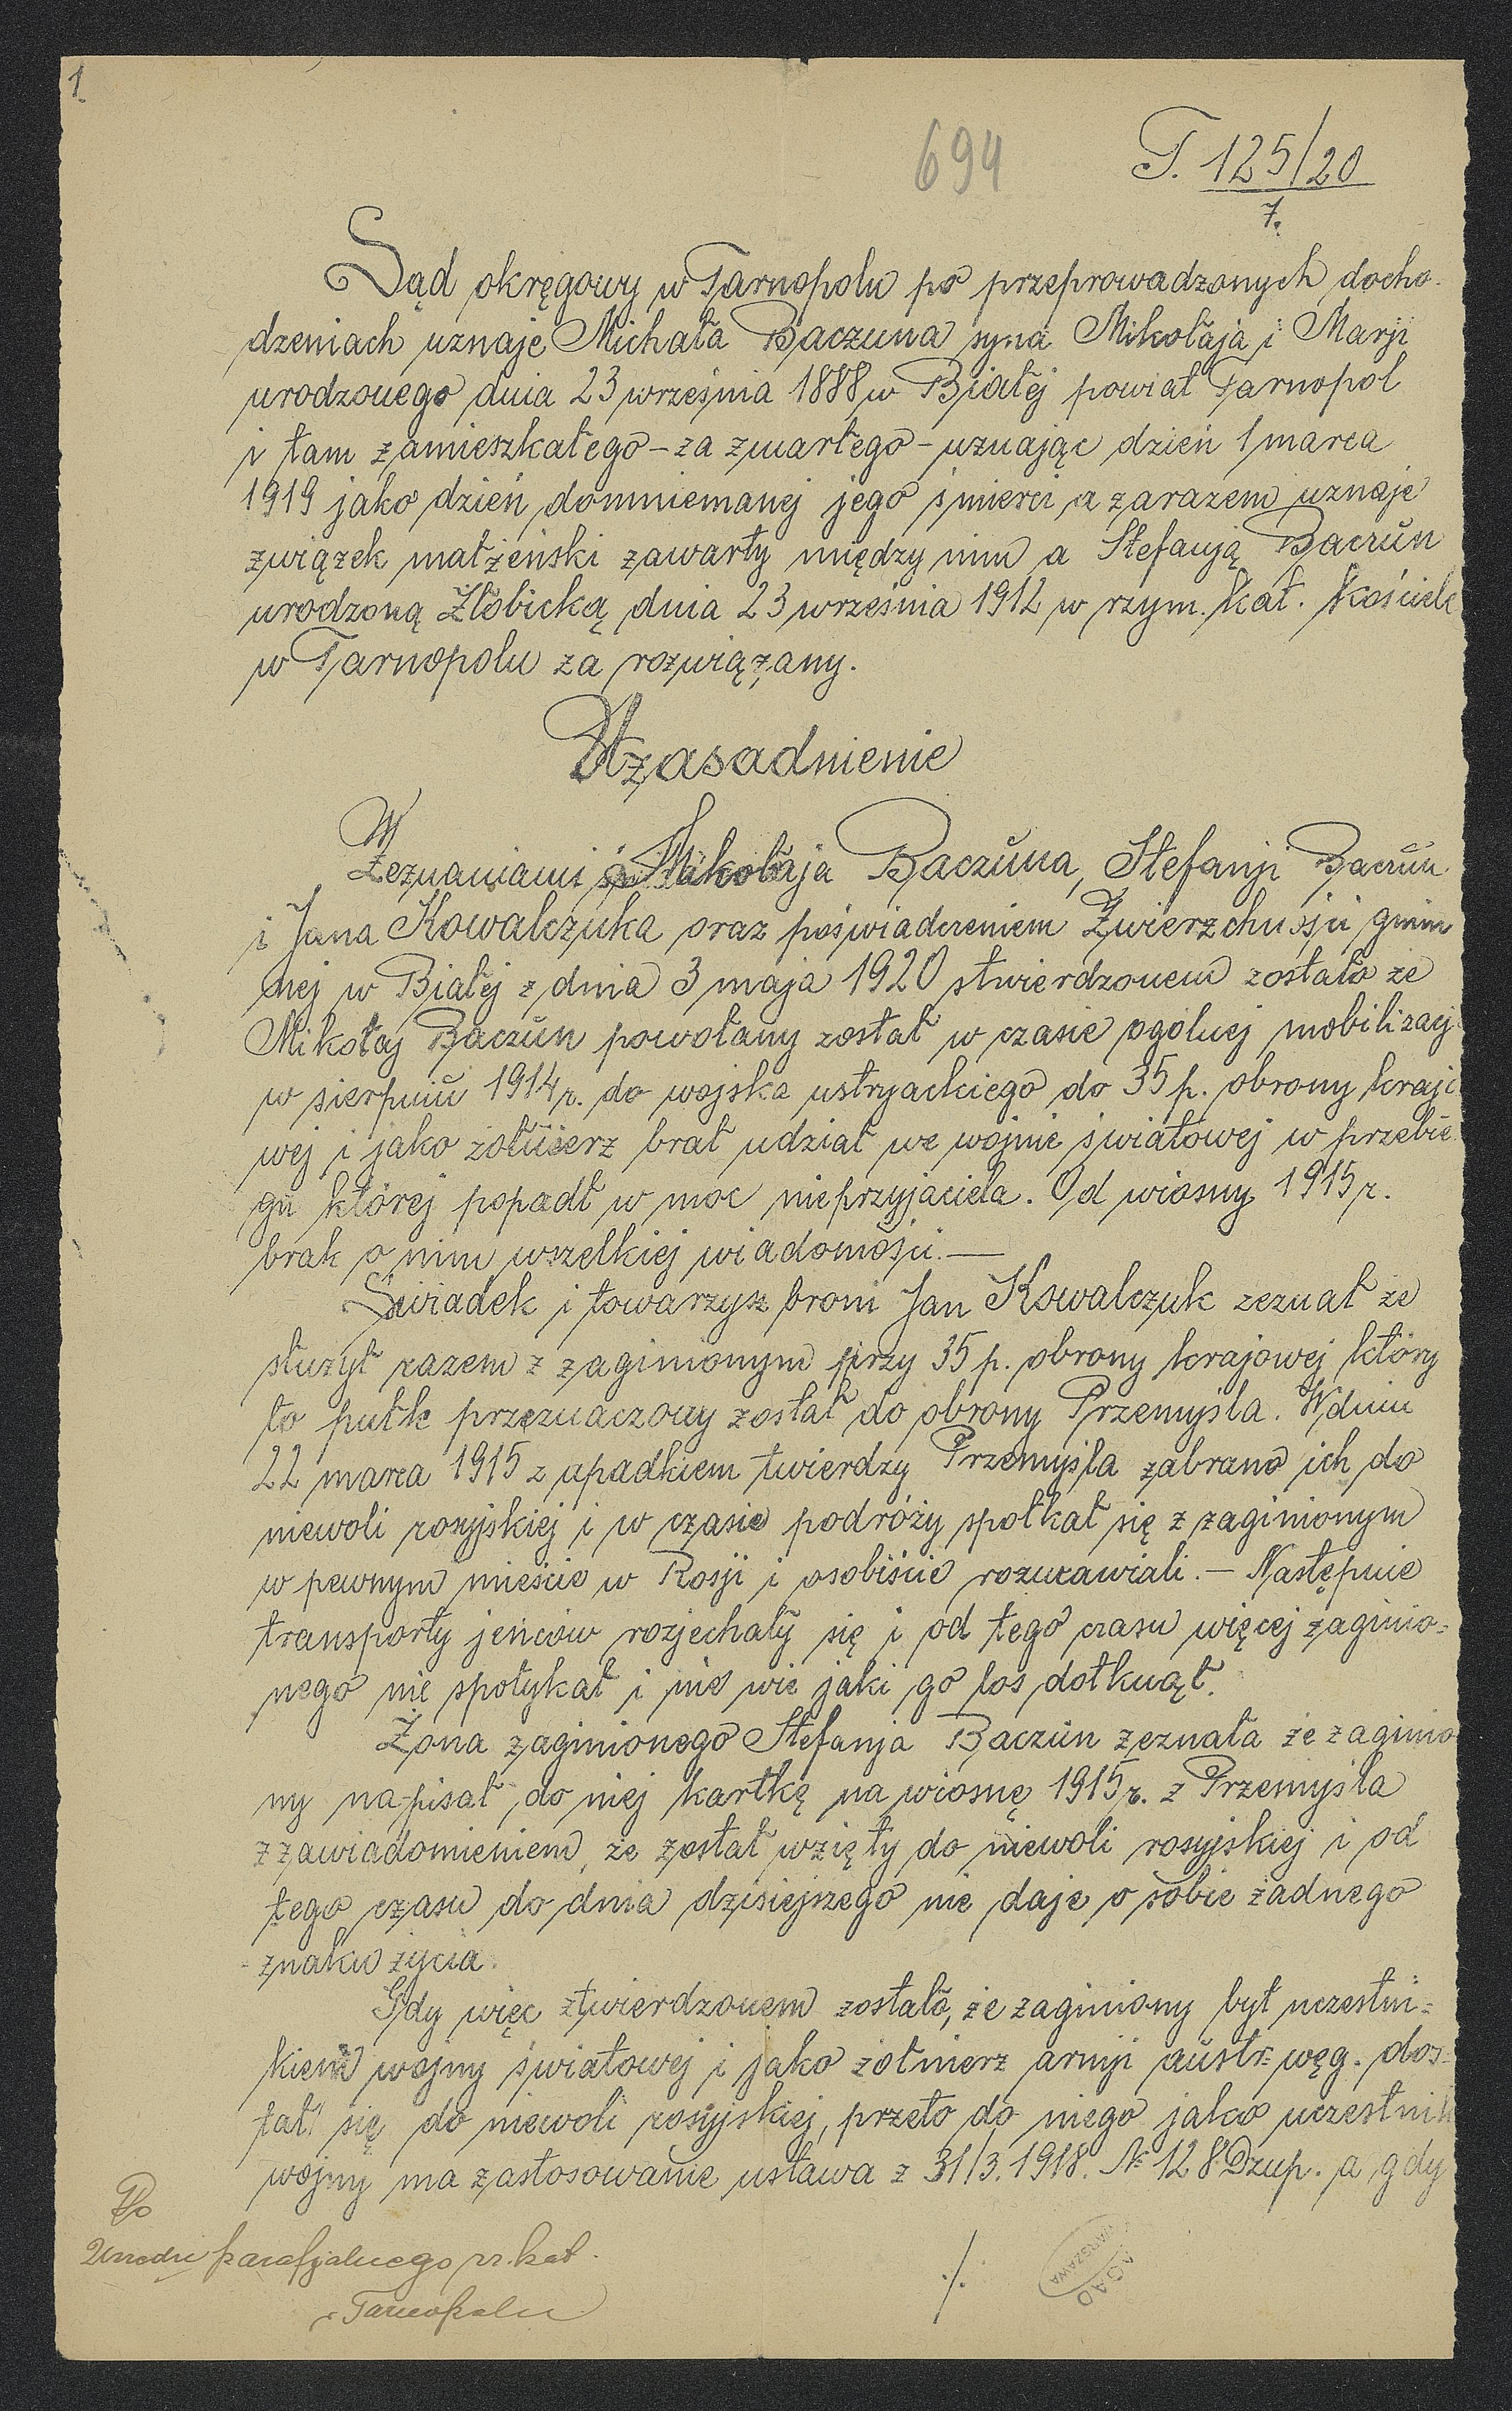 1.
694
T. 125/20
7.
Sąd okręgowy w Tarnopolu po przeprowadzonych docho-
dzeniach uznaje Michała Baczuna syna Mikołaja i Marji
urodzonego dnia 23 września 1888 w Białej powiat Tarnopol
i tam zamieszkałego – za zmarłego – uznając dzień 1 marca
1919 jako dzień domniemanej jego śmierci a zarazem uznaje
związek małżeński zawarty między nim a Stefanją Baczun
urodzoną Złobicką dnia 23 września 1912 w rzym. kat. kościele
w Tarnopolu za rozwiązany.
Uzasadnienie
Zeznaniami Mikołaja Baczuna, Stefanji Baczun
i Jana Kowalczuka oraz poświadczeniem Zwierzchności gmin
nej w Białej z dnia 3 maja 1920 stwierdzonem zostało że
Mikołaj Baczun powołany został w czasie ogólnej mobilizacji
w sierpniu 1914 r. do wojska ustryackiego do 35 p. obrony krajo
wej i jako żołnierz brał udział we wojnie światowej w przebie
gu której popadł w moc nieprzyjaciela. Od wiosny 1915 r.
brak o nim wszelkiej wiadomości. —
Świadek i towarzysz broni Jan Kowalczuk zeznał że
służył razem z zaginionym przy 35 p. obrony krajowej który
to pułk przeznaczony został do obrony Przemyśla. W dniu
22 marca 1915 z upadkiem twierdzy Przemyśla zabrano ich do
niewoli rosyjskiej i w czasie podróży spotkał się z zaginionym
w pewnym mieście w Rosji i osobiście rozmawiali. — Następnie
transporty jeńców rozjechały się i od tego czasu więcej zaginio=
nego nie spotykał i nie wie jaki go los dotknął.
Żona zaginionego Stefanja Baczun zeznała że zaginio
ny napisał do niej kartkę na wiosnę 1915 r. z Przemyśla
z zawiadomieniem, że został wzięty do niewoli rosyjskiej i od
tego czasu do dnia dzisiejszego nie daje o sobie żadnego
znaku życia.
Gdy więc stwierdzonem zostało, że zaginiony był uczestni=
kiem wojny światowej i jako żołnierz armji austr= węg. dos=
tał się do niewoli rosyjskiej, przeto do niego jako uczestnik
wojny ma zastosowanie ustawa z 31/3. 1918. № 128 Dzup. a gdy
Do
Urzędu parafjalnego rz. kat.
w Tarnopolu
./.
AGAD
WARSZAWA